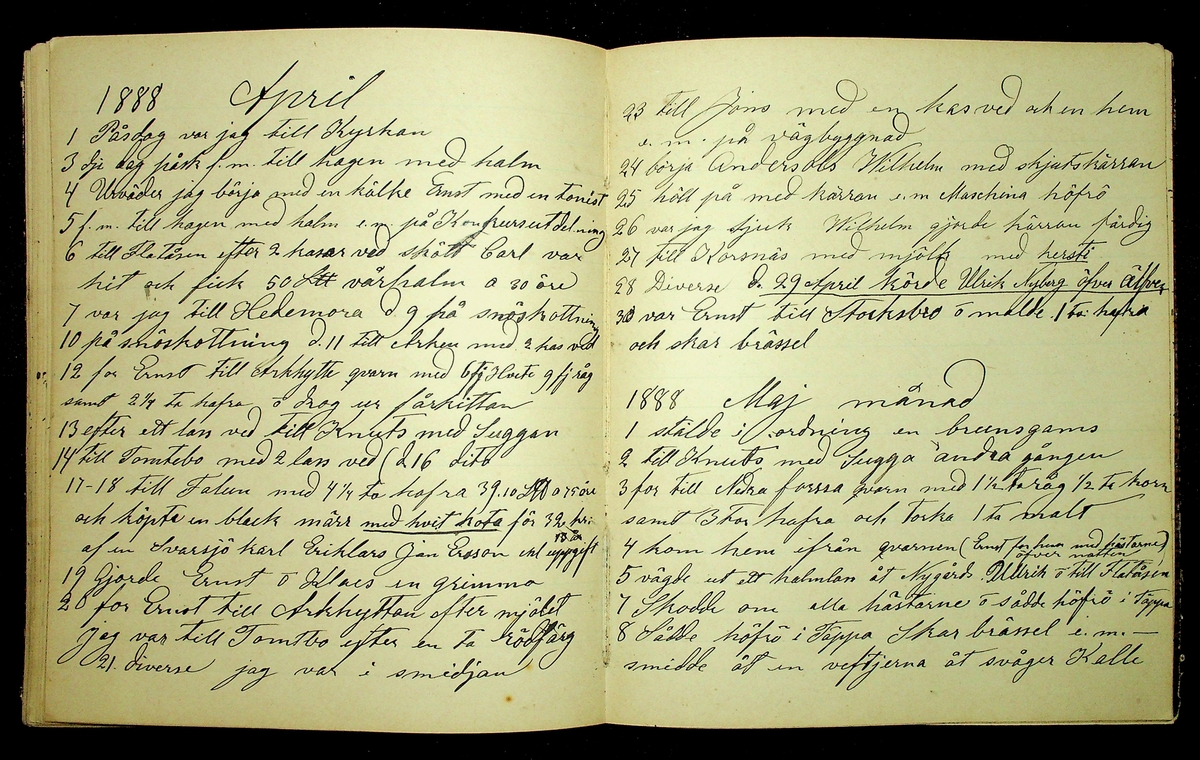 1888 April
1 Påsdag var jag till Kyrkan
3 dje dag påsk f.m. till hagen med halm
4 Urväder jag börja med en kälke Ernst med en tonist
5 f.m. till hagen med halm e.m på Konkursutdelning
6 till Flatåsen efter 2 kasar ved skött Carl var
hit och fick 50 vårhalm a 30 öre
7 var jag till Hedemora d 9 på snöskottning
10 på snöskottning d. 11 till Arken med 2 kas ved
12 for Ernst till Arkhytte qvarn med 6 fj Hvete 9 fj råg
samt 2 1/4 ta hafra o drog ur fårkittan
13 efter ett lass ved till Knuts med Suggan
14 till Tomtebo med 2 lass ved (d 16 dito
17-18 till Falun med 4 1/4 ta hafra 39.10 a 75 öre
och köpte en black märr med hvit kota för 32 kr:
af en Svarsjö karl Eriklars Jan Ersson enl uppgift
13 år
19 Gjorde Ernst o Klaes en grimma
20 for Ernst till Arkhyttan efter mjölet
Jag var till Tomtbo efter en ta rödfärg
21. diverse jag var i smidjan
23 till Jöns med en kas ved och en hem
e. m. på vägbyggnad
24 börja Andersols Wilhelm med skjutskärran
25 höll på med kärran e.m Maschina höfrö
26 var jag sjuk Wilhelm gjorde kärran färdig
27 till Korsnäs med mjölk med hersti
28 Diverse d. 29 April körde Ulrik Nyberg öfver Älfven
30 var Ernst till Stocksbro o malde 1 ta hafra
och skar brässel
1888 Maj månad
1 stälde i ordning en brunsgams
2 till Knuts med Sugga andra gången
3 for till Nedra forssa qvarn med 1 1/2 ta råg 1/2 ta korn
samt 3 tor hafra och torka 1 ta malt
4 kom hem ifrån qvarnen (Ernst for hem med hästarne)
öfver natten
5 vägde ut ett halmlass åt Nygårds Ullrik o till Flatåsen
7 Skodde om alla hästarne o sådde höfrö i Täppa
8 Sådde höfrö i Täppa Skar brässel e. m. —
smidde åt en åt svåger Kalle